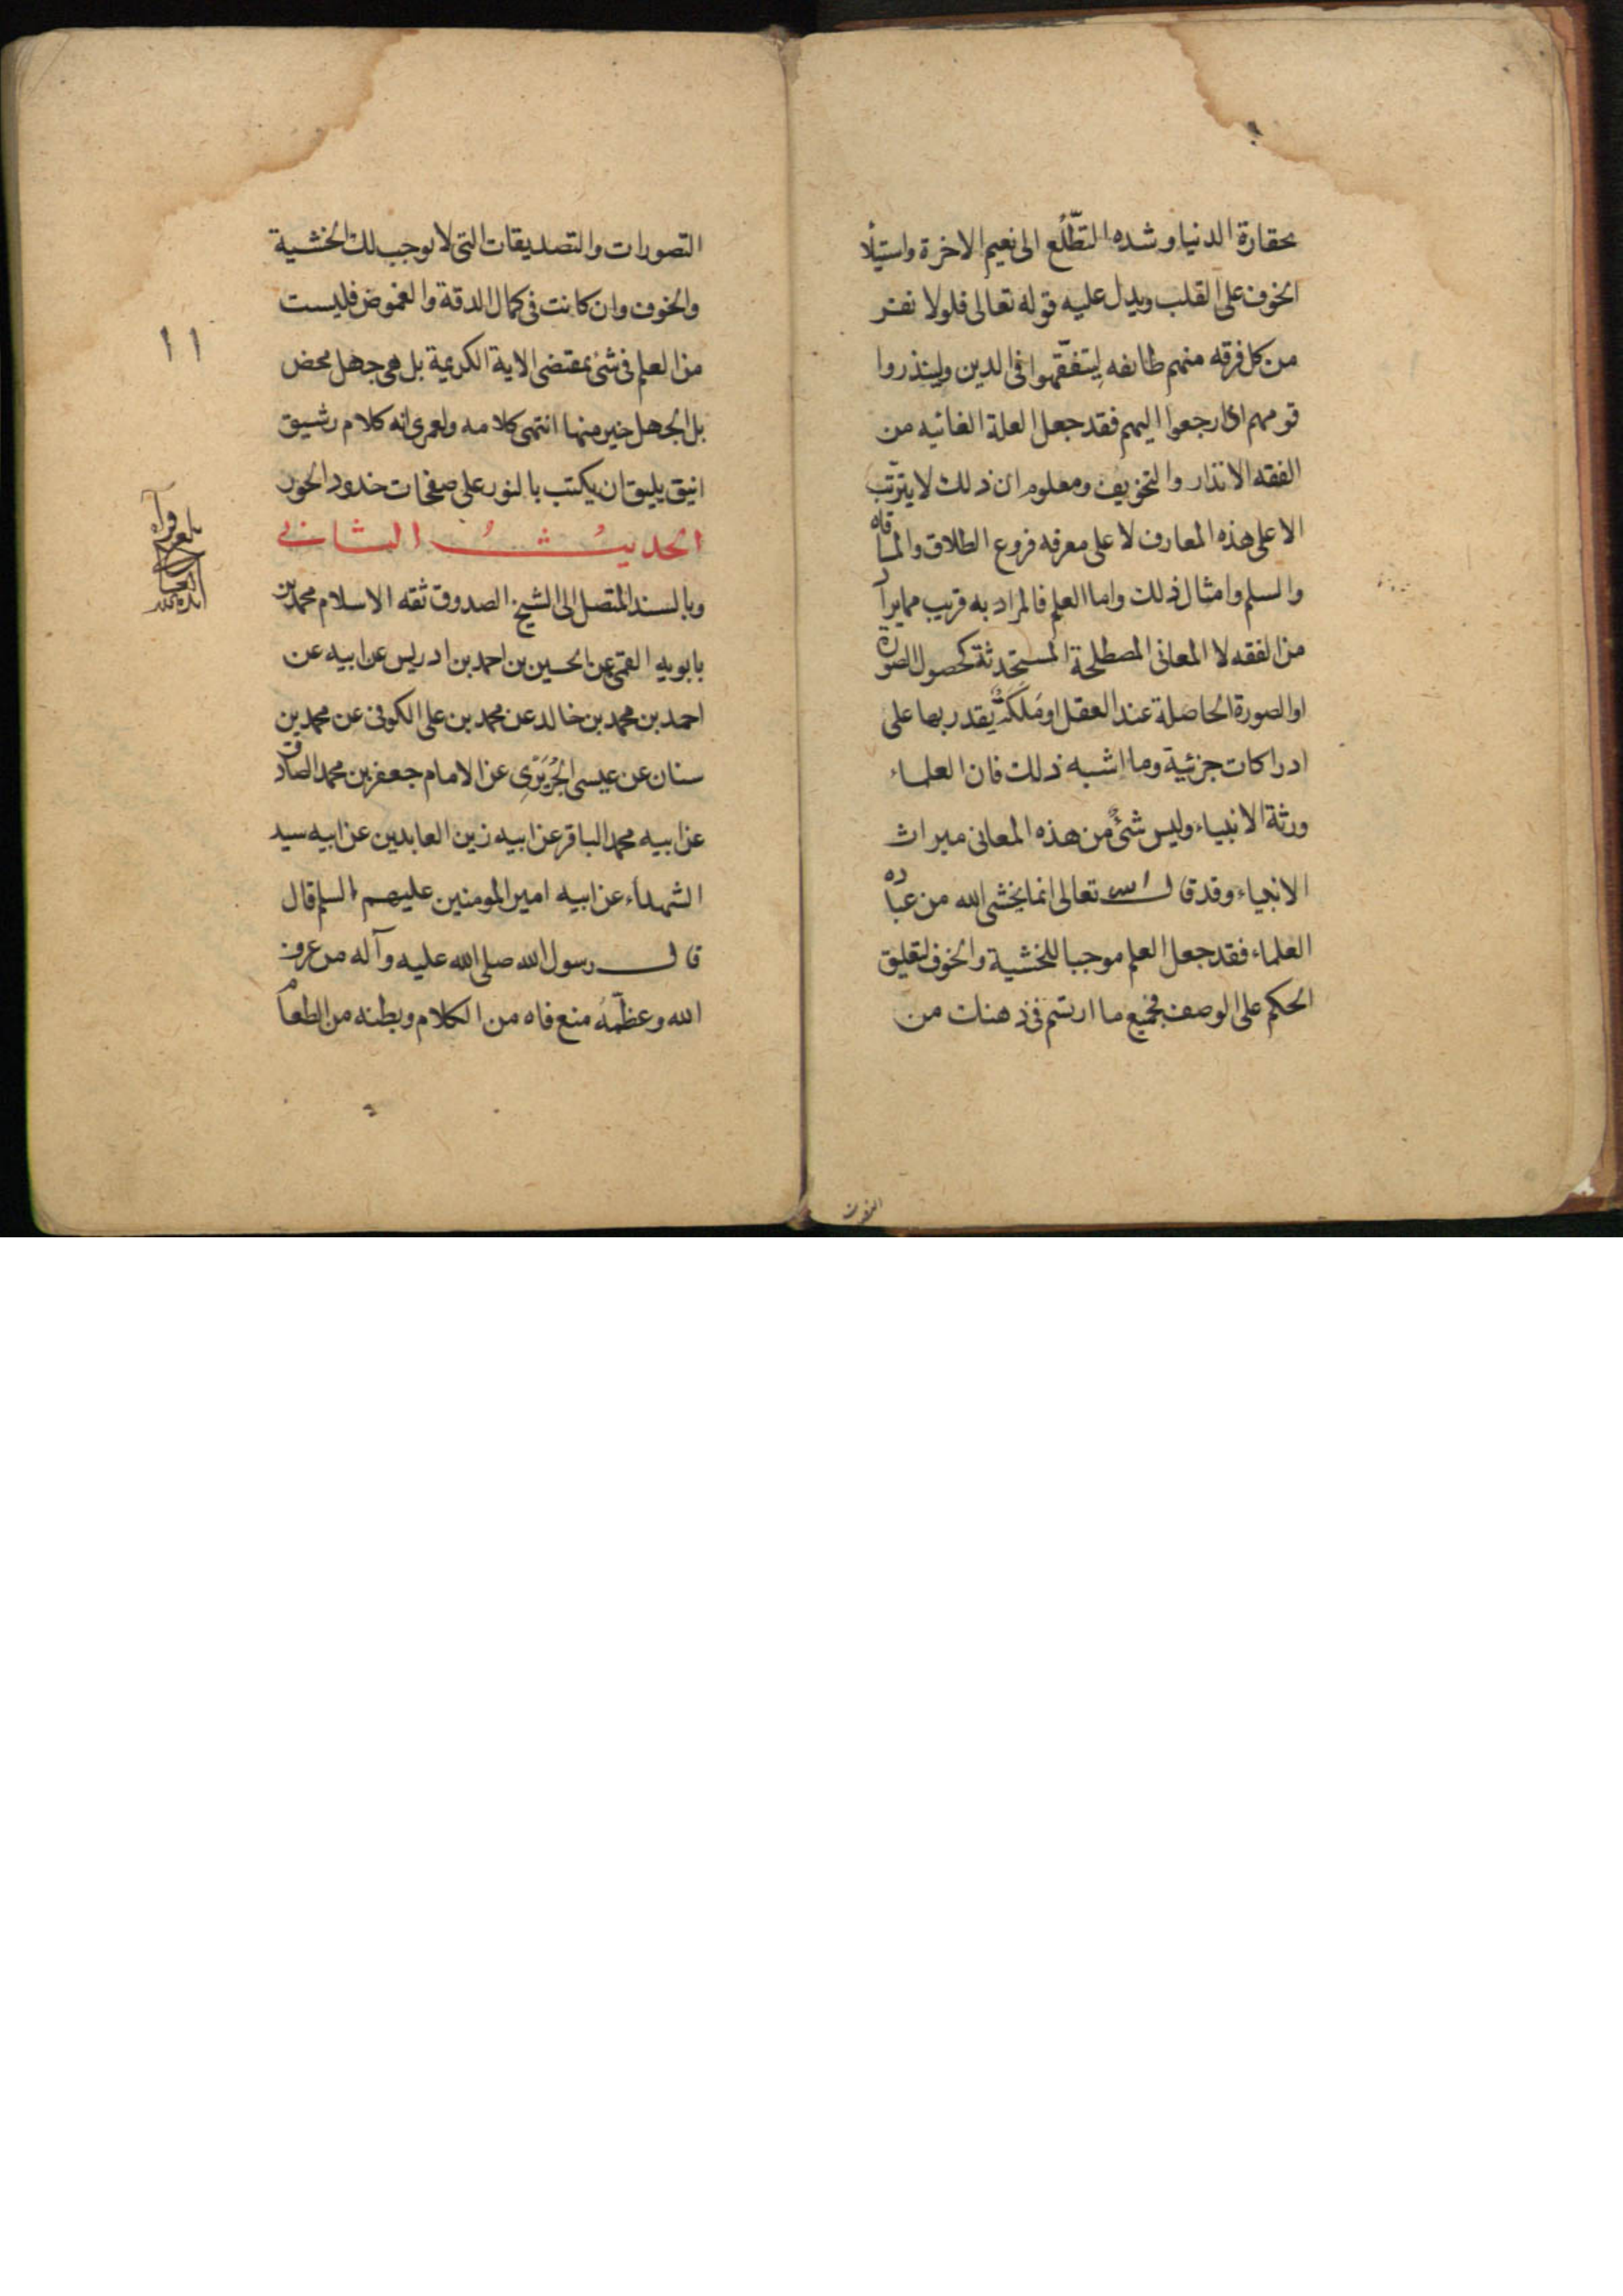 بحقارة الدنيا و شده التطّلع الى نعيم الاخرة واستيلا
الخوف على القلب ويدل عليه قوله تعالى فلولا نفر
من كل فرقه منهم طائفه ليتفقّهوا فى الدين ولينذروا
قومهم اذا رجعوا اليهم فقد جعل العلة الغائيه من
الفقه الانذار والتخويف ومعلوم ان ذلك لا يترتّب
الا على هذه المعارف لا على معرفه فروع الطلاق والمساقاه
والسلم وامثال ذلك واما العلم فالمراد به قريب مما يراد
من الفقه لا المعانى المصطلحة المستحدثة كحصول الصورة
او الصورة الحاصلة عند العقل او مَلَكَةٌ يقدر بها على
ادراكات جزئية وما اشبه ذلك فان العلماء
ورثة الانبياء وليس شئٌ من هذه المعانى ميراث
الانبياء وقد قال الله تعالى انما يخشى الله من عباده
العلماء فقد جعل العلم موجبا للخشية والخوف لتعليق
الحكم على الوصف فجميع ما ارتسم فى ذهنك من
التصورات والتصديقات التى لا يوجب لك الخشية
والخوف وان كانت فى كمال الدقة والغموض فليست
من العلم فى شئ بمقتضى الاية الكريمة بل هى جهل محض
بل الجهل خير منها انتهى كلامه ولعمرى انه كلام رشيق
انيق يليق ان يكتب بالنور على صفحات خدود الحور
الحديثُ الثانى
وبالسند المتصل الى الشيخ الصدوق ثقه الاسلام محمد بن
بابويه القمى عن الحسين بن احمد بن ادريس عن ابيه عن
احمد بن محمد بن خالد عن محمد بن على الكوفى عن محمد بن
سنان عن عيسى الجُرَيَرى عن الامام جعفر بن محمد الصادق
عن ابيه محمد الباقر عن ابيه زين العابدين عن ابيه سيد
الشهداء عن ابيه امير المومنين عليهم السلم قال
قال رسول الله صلى الله عليه وآله من عرف
الله وعظّمهُ منع فاه من الكلام وبطنه من الطعام
١١